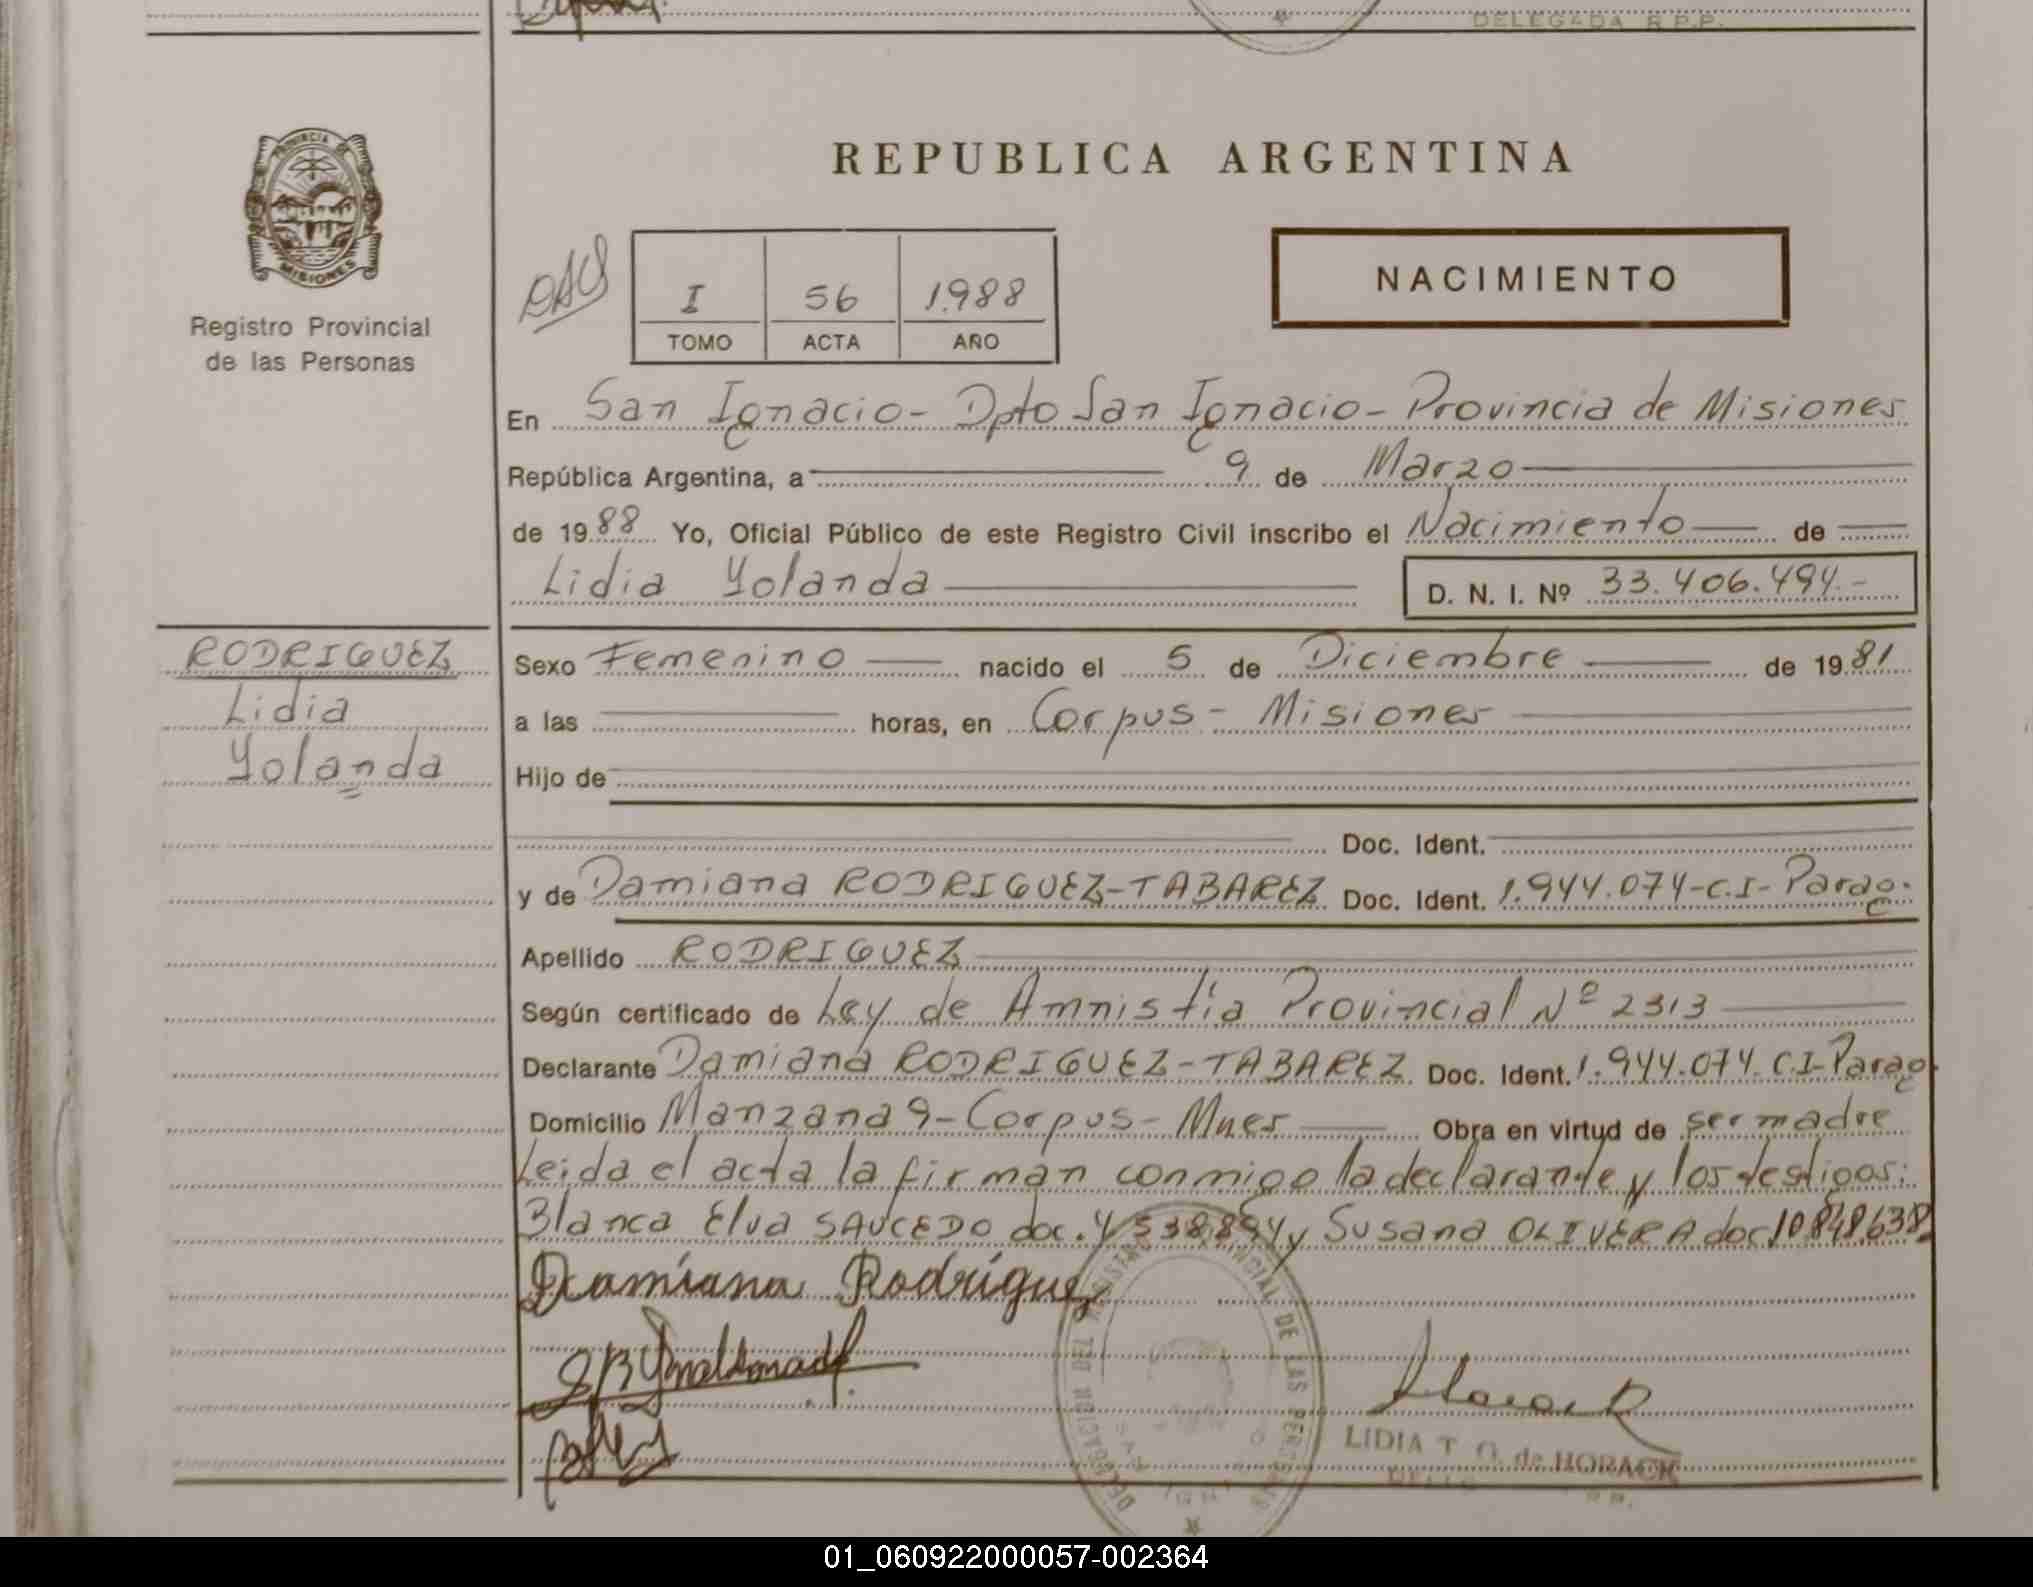 DELEGADA R.P.P.
PROVINCIA DE
MISIONES
Registro Provincial
de las Personas
REPUBLICA ARGENTINA
I 56 1.988
TOMO ACTA AÑO
NACIMIENTO
En San Ignacio - Dpto San Ignacio - Provincia de Misiones
República Argentina, a 9 de Marzo
de 1988 Yo, Oficial Público de este Registro Civil inscribo el Nacimiento de
Lidia Yolanda D. N. I. Nº 33.406.494.-
RODRIGUEZ
Lidia
Yolanda
Sexo Femenino nacido el 5 de Diciembre de 1981
a las horas, en Corpus - Misiones
Hijo de
Doc. Ident.
y de Damiana RODRIGUEZ-TABAREZ Doc. Ident. 1.944.074-C.I-Parag.
Apellido RODRIGUEZ
Según certificado de Ley de Amnistía Provincial Nº 2313
Declarante Damiana RODRIGUEZ-TABAREZ Doc. Ident. 1.944.074. C.I-Parag.
Domicilio Manzana 9 - Corpus - Mnes Obra en virtud de ser madre
Leida el acta la firman conmigo la declarante y los testigos:
Blanca Elva SAUCEDO doc. 4.538.894 y Susana OLIVERA doc 10.848.638
Damiana Rodríguez
Horack
LIDIA T. O. de HORACK
DELEGACION DEL REGISTRO PROVINCIAL DE LAS PERSONAS
01_060922000057-002364